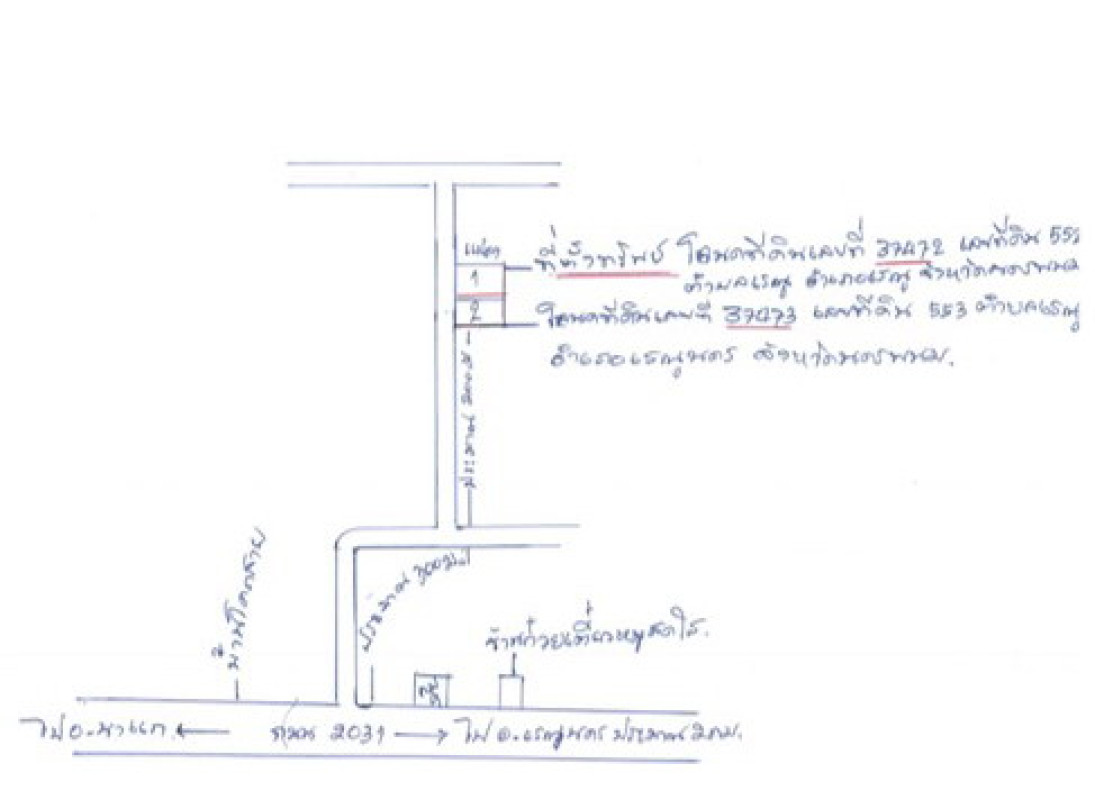 แปลง
1
2
ที่ตั้งทรัพย์ โฉนดที่ดินเลขที่ 37472 เลขที่ดิน 552
ตำบลเรณู อำเภอเรณู จังหวัดนครพนม
โฉนดที่ดินเลขที่ 37473 เลขที่ดิน 553 ตำบลเรณู
อำเภอเรณูนคร จังหวัดนครพนม.
ประมาณ 200ม
ประมาณ 300ม.
บ้านโคกสาย
ร้านก๋วยเตี๋ยวหมูสดใส.
ไป อ.นาแก ← ถนน 2031 → ไป อ.เรณูนคร ประมาณ 2กม.